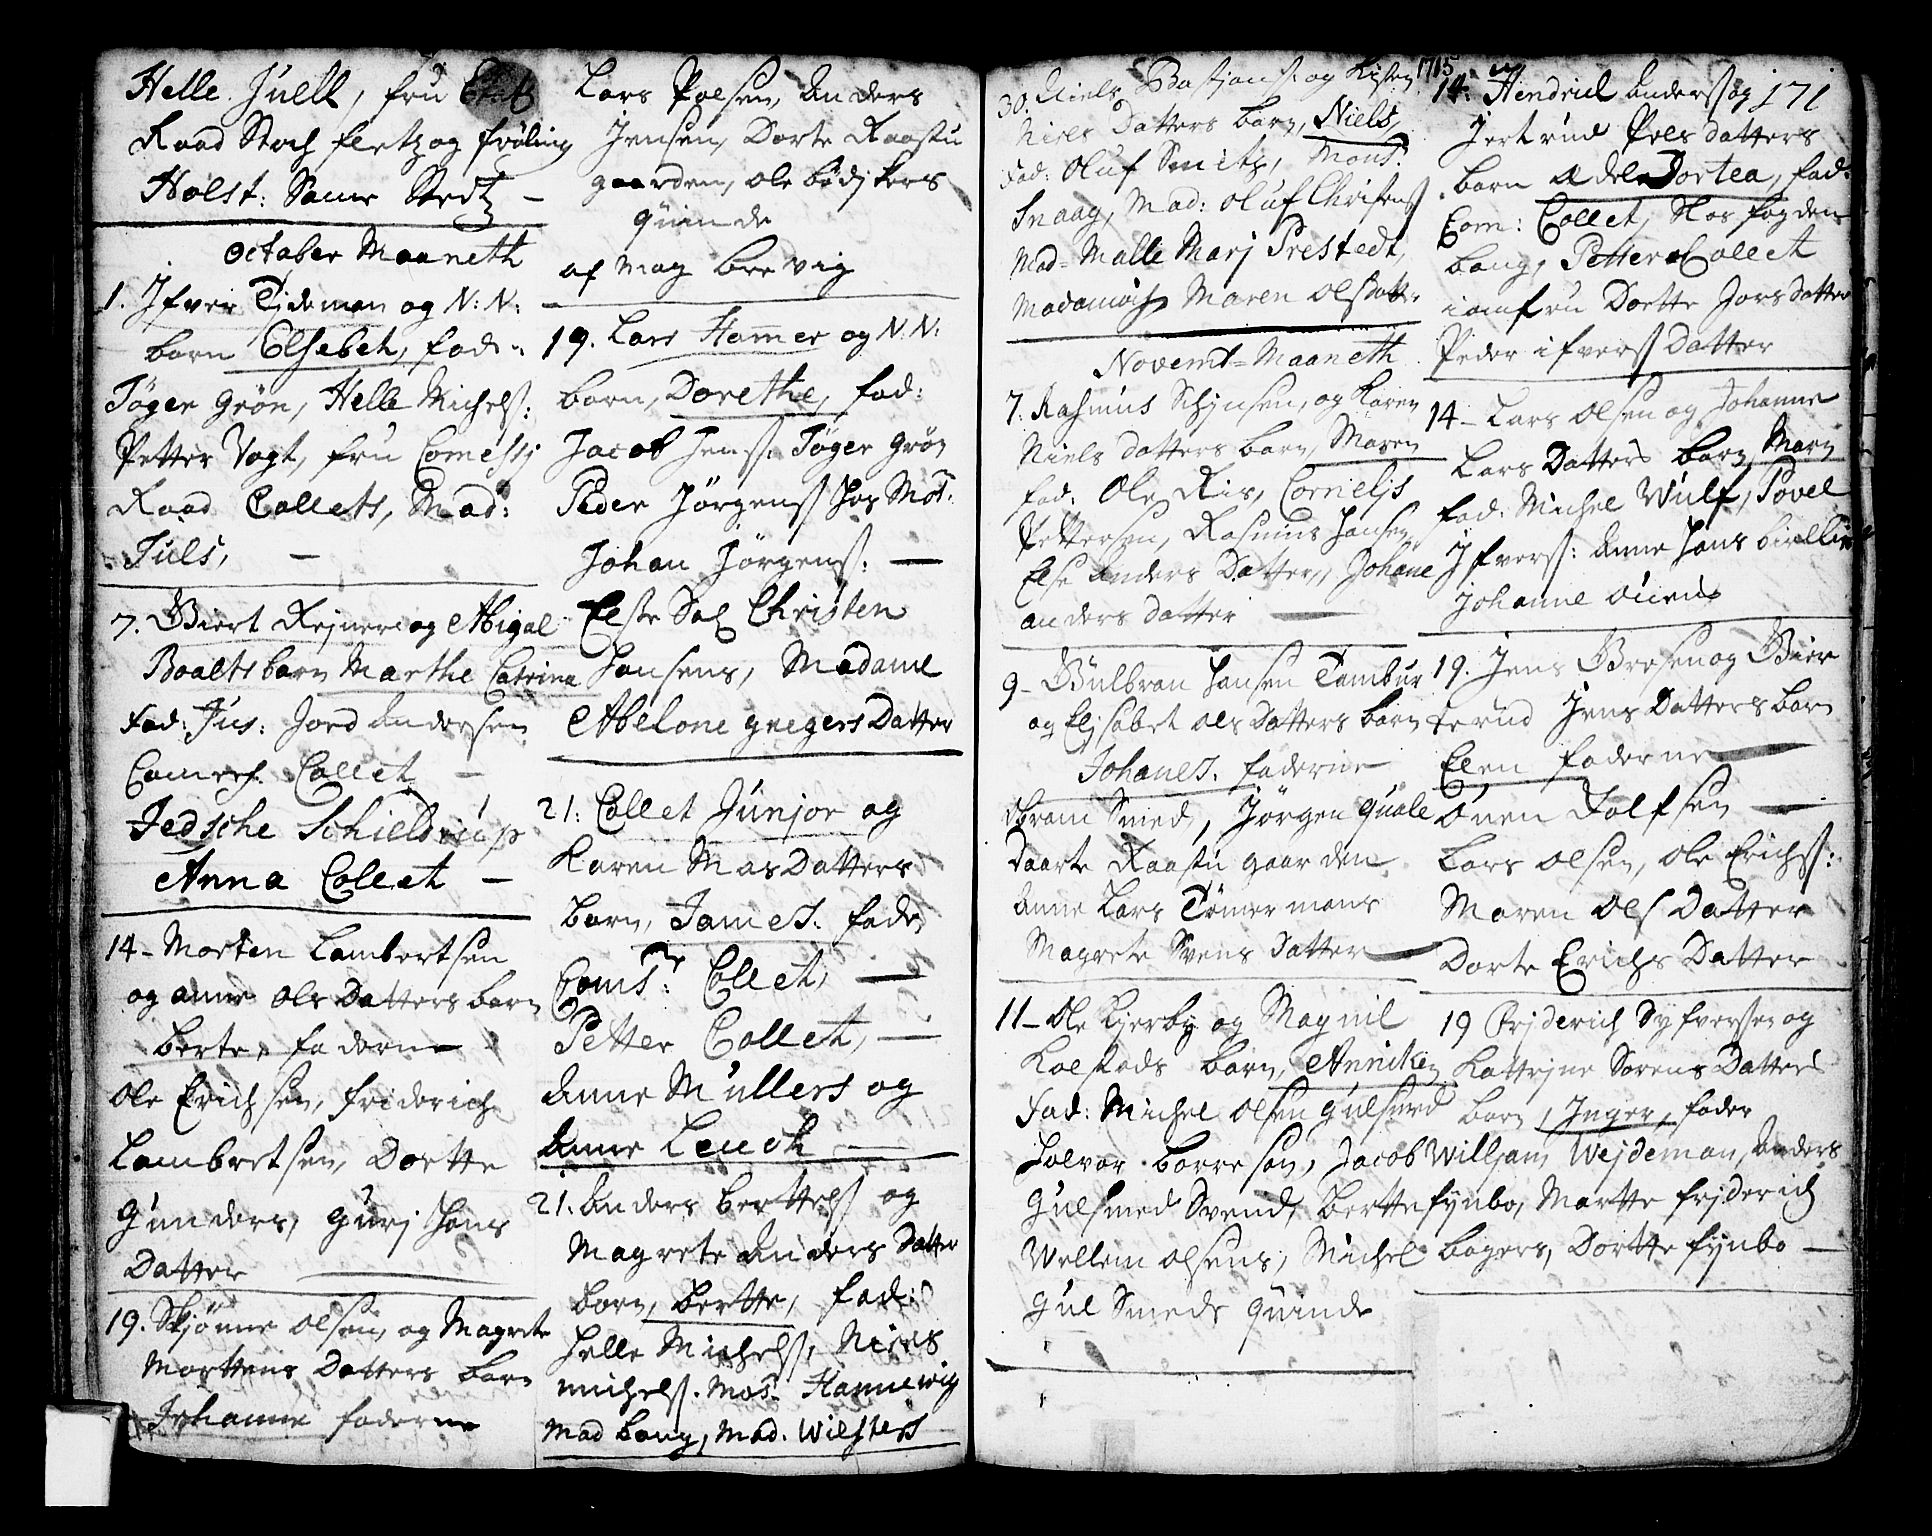 Helle Juell, fru Etats
Raad Stoch fletz og frøling
Holst: Samme Stedtz –
October Maaneth
1. Ifver Tideman og N: N:
barn Elsebeh, fad:
Tøger Grøn, Helle Michels:
Petter Vogt, fru Comersj
Raad Collets, Mad:
Juls, –
7. Giert Rejner og Abigal
Boalts barn Marthe Catrina
fad: Jus: Jord Andersen
Comerf. Collet –
Jedsche Schieldrup
Anna Collet –
14 – Morten Lambertsen
og anne Ols Datters barn
berte, faderne
Ole Erichsen, friderich
Lambretsen, Dorte
Gunders, Gurj Hans
Datter
19. Skjønne Olsen, og Magrete
Mortens Datters barn
Johanne faderne
Lars Polsen, Anders
Jensen, Dorte Raastu
gaarden, ole bødjkers
quinde
af Mag brevig
19. Lars Hamer og N: N:
barn, Dorethe, fad:
Jacob Jenss. Tøger Grøn
Peder Jørgens Hos Mos:
Johan Jørgens: –
Elste Sal Christen
Hansens, Madame
Abelone gregers Datter
21: Collet Junjor og
Karen Mas Datters
barn, James. fade
Coms: Collet, –
Petter Collet, –
Anne Müllers og
Anne Leuch –
21. Anders bertels og
Magrete Anders Datter
born, bertte, fad:
Helle Michels, Niels
michels. Mos. Hannewig
Mad bang, Mad. Wilsters
30. Niels Bastjans. og Lisen
Niels Datters barn, Niels,
fad: Oluf Smitz, Mons:
Snaag, Mad: oluf Christens
Mad = Malle Marj Prestedt,
Madamois Maren Ols Datter
Novemt = Maaneth
7. Rasmus Schynsen, og Karen
Niels datters barn Maren
fad: Ole Ris, Cornelis
Pettersen, Rasmus Hansen
Else Anders Datter, Johane
anders datter –
9 – Gulbran Hansen Tambur
og Elisabet Ols Datters barn
Johanes. faderne
Smed, Jørgen Quale
Daarte Raastu gaarden
Anne Lars Tømermans
Magrete Svens Datter –
11 – Ole Kjerby og Magnil
Kolstads barn, Anniken
fad: Michel Olsen gulsmed
Halvor borresøn, Jacob
Gulsmed Svend, bertte
Wellem olsens, Michel
Gul Smeds quinde
1715
171
14. Hendrich Anders og
Jertrud Pels datters
barn Adel Dortea, fad:
Com: Collet, Slosfogden
bang, Petter Collet
iomfru Dorte Jorsdatter
Peder ifvers Datter
14 – Lars Olsen og Johanne
Lars Datters barn Marn
fad: Michel Wulf, Povel
Ifvers: Anne Hans
Johanne Ouens
19. Jens Brosen og Gier
terud Jens Datters barn
Elen faderne
Ouen Jolfsen –
Lars Olsen, Ole Erichs:
Maren Ols Datter
Dorte Erichs Datter
19 Friderich Syfversen og
Kattrine Sørens Datters
barn, Inger, fader
Willjam Wejdeman, Anders
fynbo, Martte friderich
bagers, Dortte fynbo –